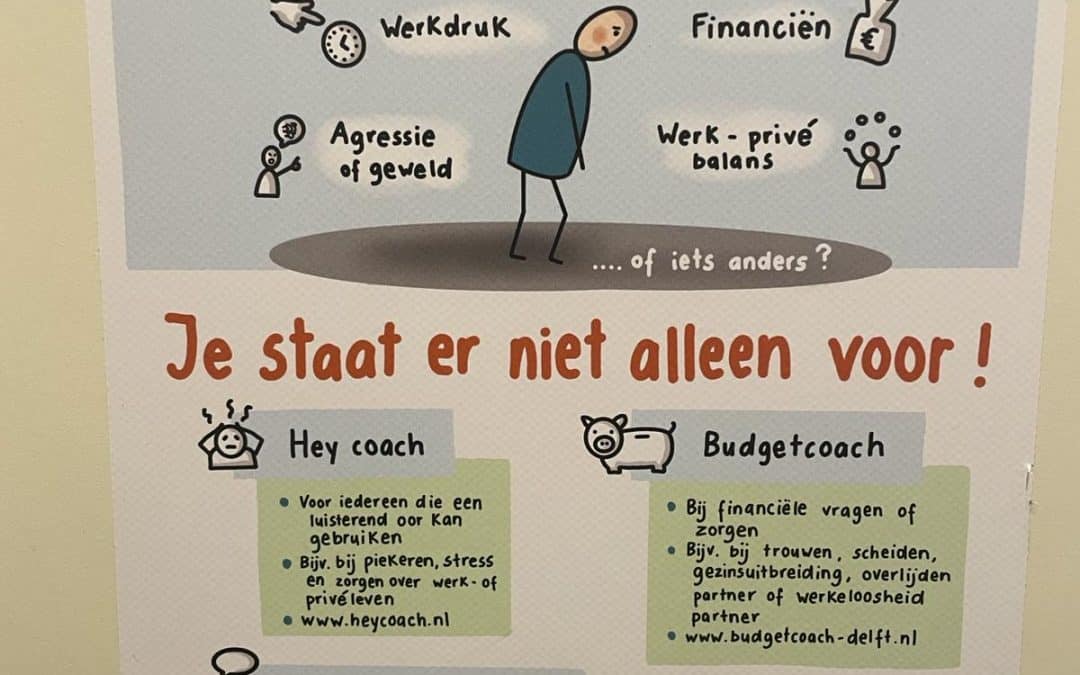 Werkdruk
Financiën
€
Agressie
of geweld
Werk - privé
balans
.... of iets anders?
Je staat er niet alleen voor!
Hey coach
• Voor iedereen die een
luisterend oor kan
gebruiken
• Bijv. bij piekeren, stress
en zorgen over werk- of
privéleven
• www.heycoach.nl
Budgetcoach
• Bij financiële vragen of
zorgen
• Bijv. bij trouwen, scheiden,
gezinsuitbreiding, overlijden
partner of werkeloosheid
partner
• www.budgetcoach-delft.nl